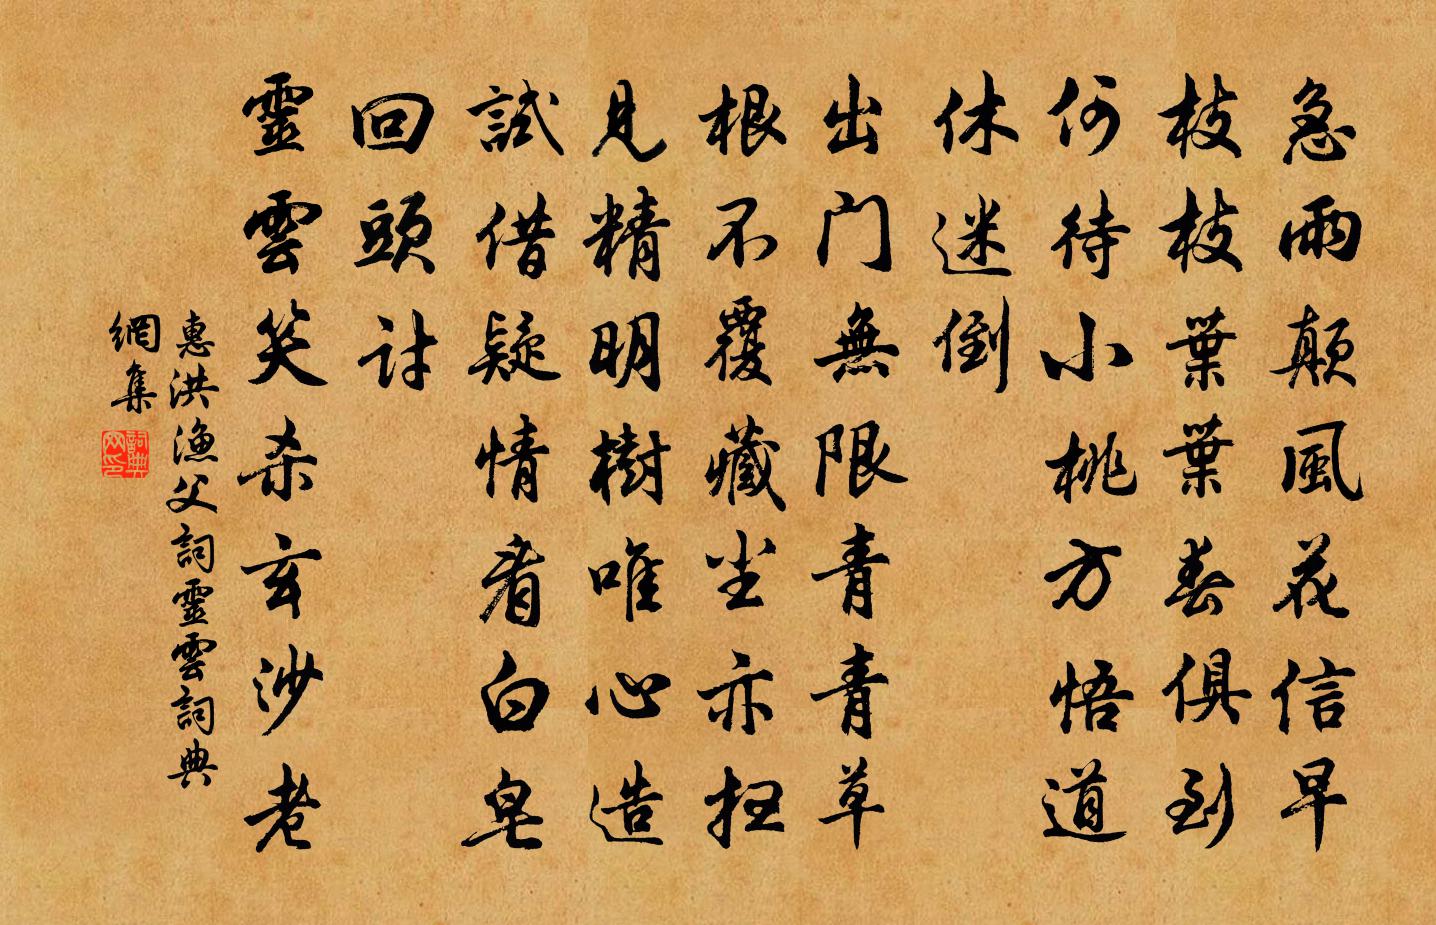 急雨顛風花信早
枝枝葉葉春俱到
何待小桃方悟道
休迷倒
出门無限青青草
根不覆藏尘亦扫
見精明樹唯心造
試借疑情看白皂
回頭討
靈雲笑杀玄沙老
惠洪渔父詞靈雲詞典
網集
詞典
网印